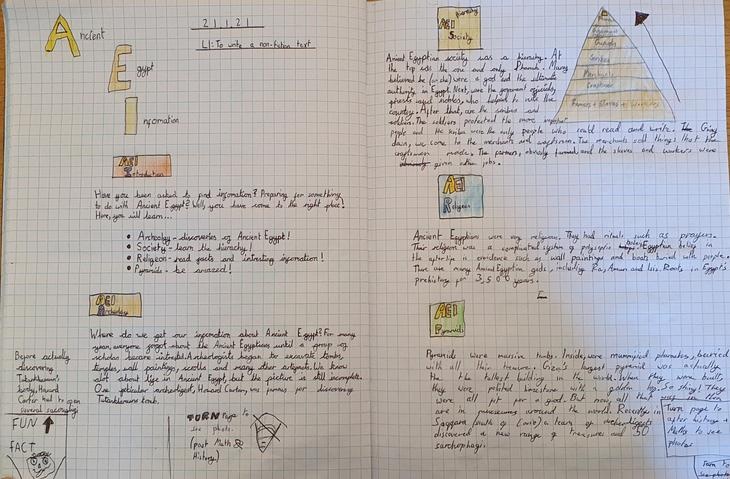 Ancient
Egypt
Information
21.1.21
LI: To write a non-fiction text
AEI
Introduction
Have you been asked to find infomation? Preparing for something
to do with Ancient Egypt? Well, you have come to the right place!
Here, you will learn...
• Archeology - discoveries of Ancient Egypt!
• Society - learn the hierarchy!
• Religeon - read facts and intresting infomation!
• Pyramids - be amazed!
AEI
Where do we get our infomation about Ancient Egypt? For many
years, everyone forgot about the Ancient Egyptians until a group of
scholas became intrested. Archeologists began to excavate tombs,
temples, wall paintings, scrolls and many other artefacts. We know
alot about life in Ancient Egypt, but the picture is still incomplete.
One paticular archeologist, Howard Carter, was famous for discovering
Tutankhamuns tomb.
Before actually
discovering
Tutankhamun's
tomb, Howard
Carter had to open
several
FUN
FACT
TURN page to
see photo.
(past Math
History)
AEI
Society
Ancient Egyptian society was a hierarchy. At
the top was the one and only Pharaoh. Many
believed he (or she) were a god and the ultimate
authority in Egypt. Next, were the goverment officials,
priests and nobles, who helped to rule the
country. After that, are the scribes and
soldiers. The soldiers protected the more important
people and the scribes were the only people who could read and write. Going
down, we come to the merchants and craftsmen. The merchants sold things that the
craftsmen made. The farmers, obviously farmed and the slaves and workers were
given other jobs.
Pharaoh
Goverment
Scribes
Merchants
Craftsmen
Farmers + Slaves +
AEI
Religeon
Ancient Egyptians were very religious. They had rituals such as prayers.
Their religion was a complicated system of Egyptian belief in
the afterlife is evidence such as wall paintings and boats buried with people.
There are many Ancient Egyptian gods, including Ra, Amun and Isis. Roots in Egypt's
prehistory for 3,500 years.
AEI
Pyramids
Pyramids were massive tombs. Inside, were mummified pharaohs, buried
with all their treasure. Giza's largest pyramid was actually
the tallest building in the world. When they were built,
they were polished limestone with a golden top. So shiny! They
were all fit for a god. But now, all that
are in museums around the world. Recently in
Saqqara (south of Cairo) a team of archeoligists
discovered a new range of treasures and 50
sarcophagi.
Turn page to
after history +
Maths to see
photo
Turn
see photo